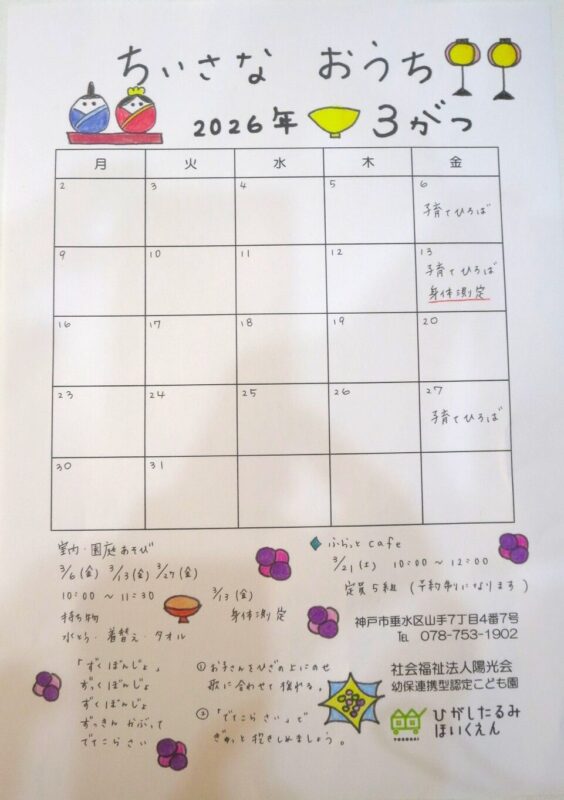 ちいさな おうち
2026年 3がつ
月 火 水 木 金
2 3 4 5 6
子育てひろば
9 10 11 12 13
子育てひろば
身体測定
16 17 18 19 20
23 24 25 26 27
子育てひろば
30 31
室内・園庭あそび
3/6(金) 3/13(金) 3/27(金)
10:00 〜 11:30
持ち物
水とう・着替え・タオル
3/13(金)
身体測定
ふらっと cafe
3/21(土) 10:00 〜 12:00
定員5組 (予約制になります)
神戸市垂水区山手7丁目4番7号
TEL 078-753-1902
「ずくぼんじょ」
ずっくぼんじょ
ずくぼんじょ
ずっきん かぶって
でてこらさい
① お子さんをひざの上にのせ
歌に合わせて揺れる。
② 「でてこらさい」で
ぎゅっと抱きしめましょう。
社会福祉法人陽光会
幼保連携型認定こども園
ひがしたるみ
ほいくえん
YOUKOUKAI